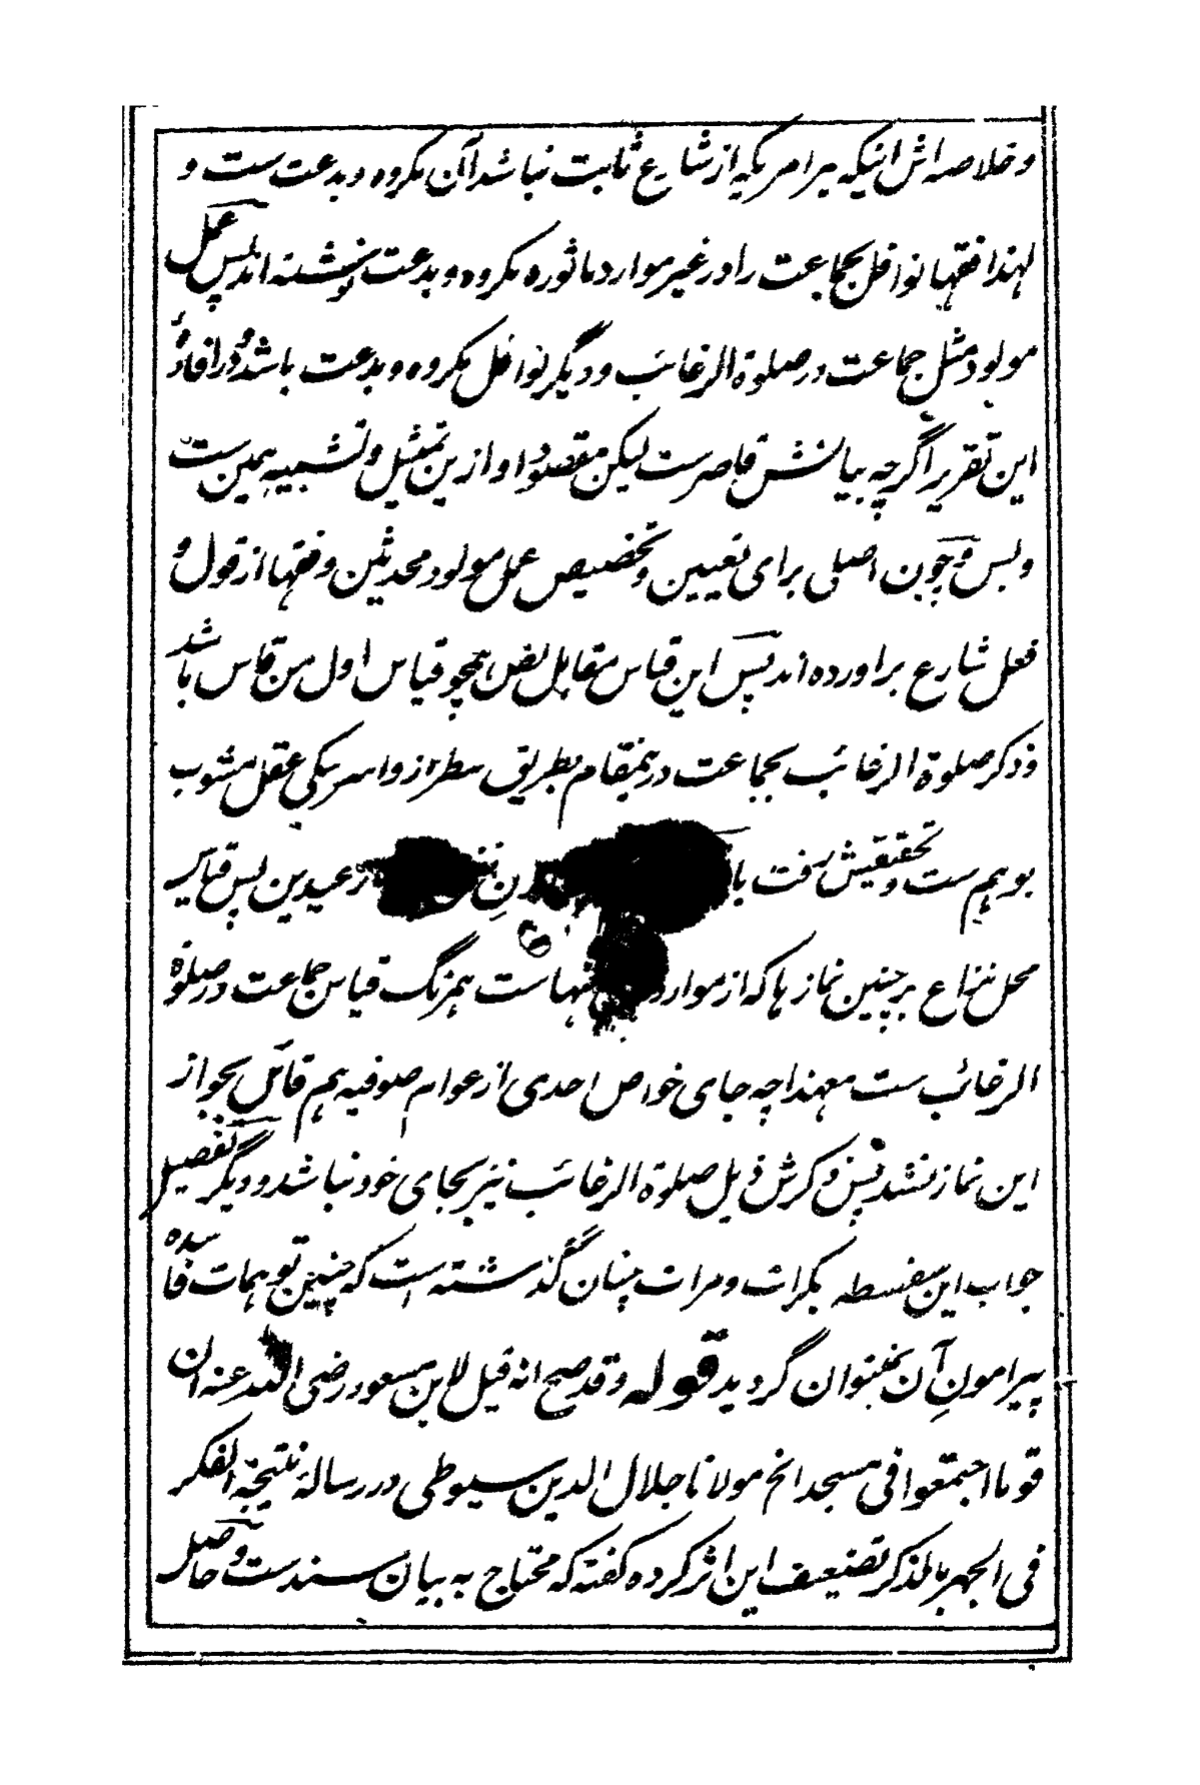 و خلاصه اش اینکه هر امریکه از شارع ثابت نباشد آن مکروه و بدعت ست و
لهذا فقها نوافل بجماعت را در غیر موارد ماثوره مکروه و بدعت نوشته اند پس عمل
مولود مثل جماعت در صلوة الرغائب و دیگر نوافل مکروه و بدعت باشد و در افاده
این تقریر اگرچه بیانش قاصرست لیکن مقصود او ازین تمثیل و تشبیه همین ست
و بس و چون اصلی برای تعیین و تخصیص عمل مولود محدثین و فقها از قول و
فعل شارع براورده اند پس این قیاس مقابل نص همچو قیاس اول من قاس باشد
و ذکر صلوة الرغائب بجماعت درینمقام بطریق سطراز واسریکی عقل مشوب
بوهم ست و تحقیقش رفت عیدین پس قیاس
محل نزاع بر چنین نماز ها که از موارد ست همرنگ قیاس جماعت در صلوة
الرغائب ست معهذا چه جای خواص احدی از عوام صوفیه هم قائل بجواز
این نماز نشد پس ذکرش ذیل صلوة الرغائب نیز بجای خود نباشد و دیگر تفصیل
جواب این سفسطه بکرات و مرات چنان گذشته است که چنین توهمات فاسده
پیرامون آن نتوان گردید قوله و قد صح انه قیل لابن مسعود رضی الله عنه ان
قوما اجتمعوا فی مسجد الخ مولانا جلال الدین سیوطی در رسالۀ نتیجة الفکر
فی الجهر بالذکر تضعیف این اثر کرده گفته که محتاج به بیان سندست و حاصل